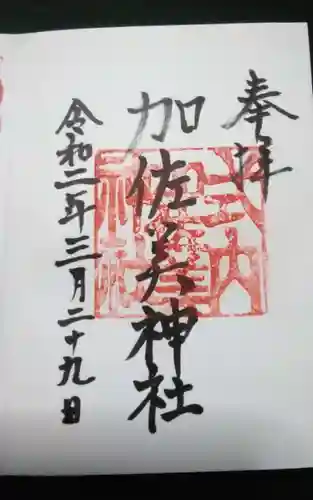 奉拝
加佐美神社
令和二年三月二十九日